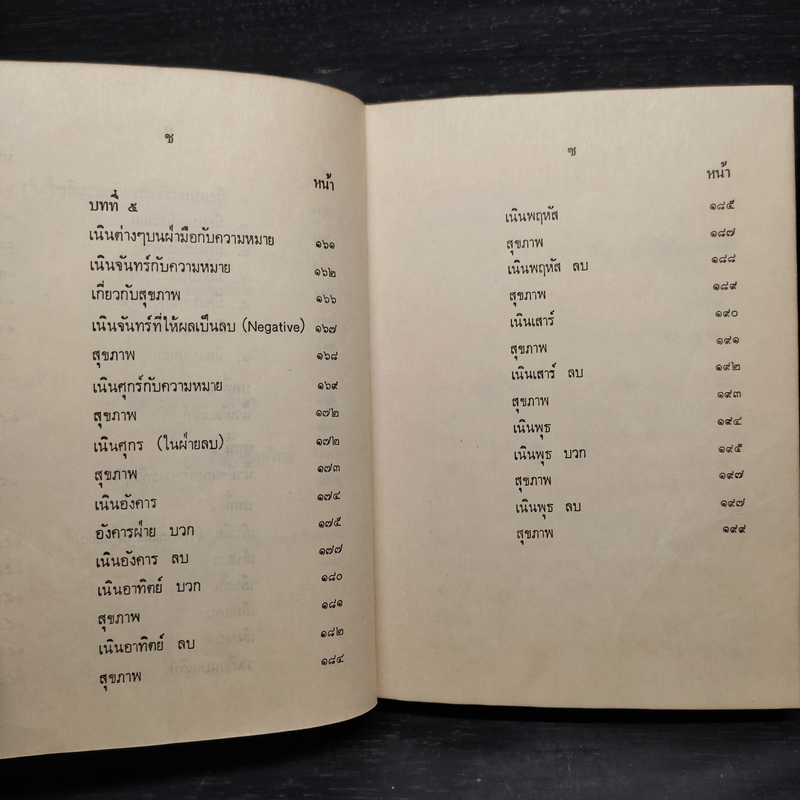 ช
หน้า
บทที่ ๕
เนินต่างๆบนฝ่ามือกับความหมาย ๑๖๑
เนินจันทร์กับความหมาย ๑๖๒
เกี่ยวกับสุขภาพ ๑๖๖
เนินจันทร์ที่ให้ผลเป็นลบ (Negative) ๑๖๗
สุขภาพ ๑๖๘
เนินศุกร์กับความหมาย ๑๖๙
สุขภาพ ๑๗๒
เนินศุกร (ในฝ่ายลบ) ๑๗๒
สุขภาพ ๑๗๓
เนินอังคาร ๑๗๔
อังคารฝ่าย บวก ๑๗๕
เนินอังคาร ลบ ๑๗๗
เนินอาทิตย์ บวก ๑๘๐
สุขภาพ ๑๘๑
เนินอาทิตย์ ลบ ๑๘๒
สุขภาพ ๑๘๔
ซ
หน้า
เนินพฤหัส ๑๘๕
สุขภาพ ๑๘๗
เนินพฤหัส ลบ ๑๘๘
สุขภาพ ๑๘๙
เนินเสาร์ ๑๙๐
สุขภาพ ๑๙๑
เนินเสาร์ ลบ ๑๙๒
สุขภาพ ๑๙๓
เนินพุธ ๑๙๔
เนินพุธ บวก ๑๙๕
สุขภาพ ๑๙๗
เนินพุธ ลบ ๑๙๗
สุขภาพ ๑๙๙